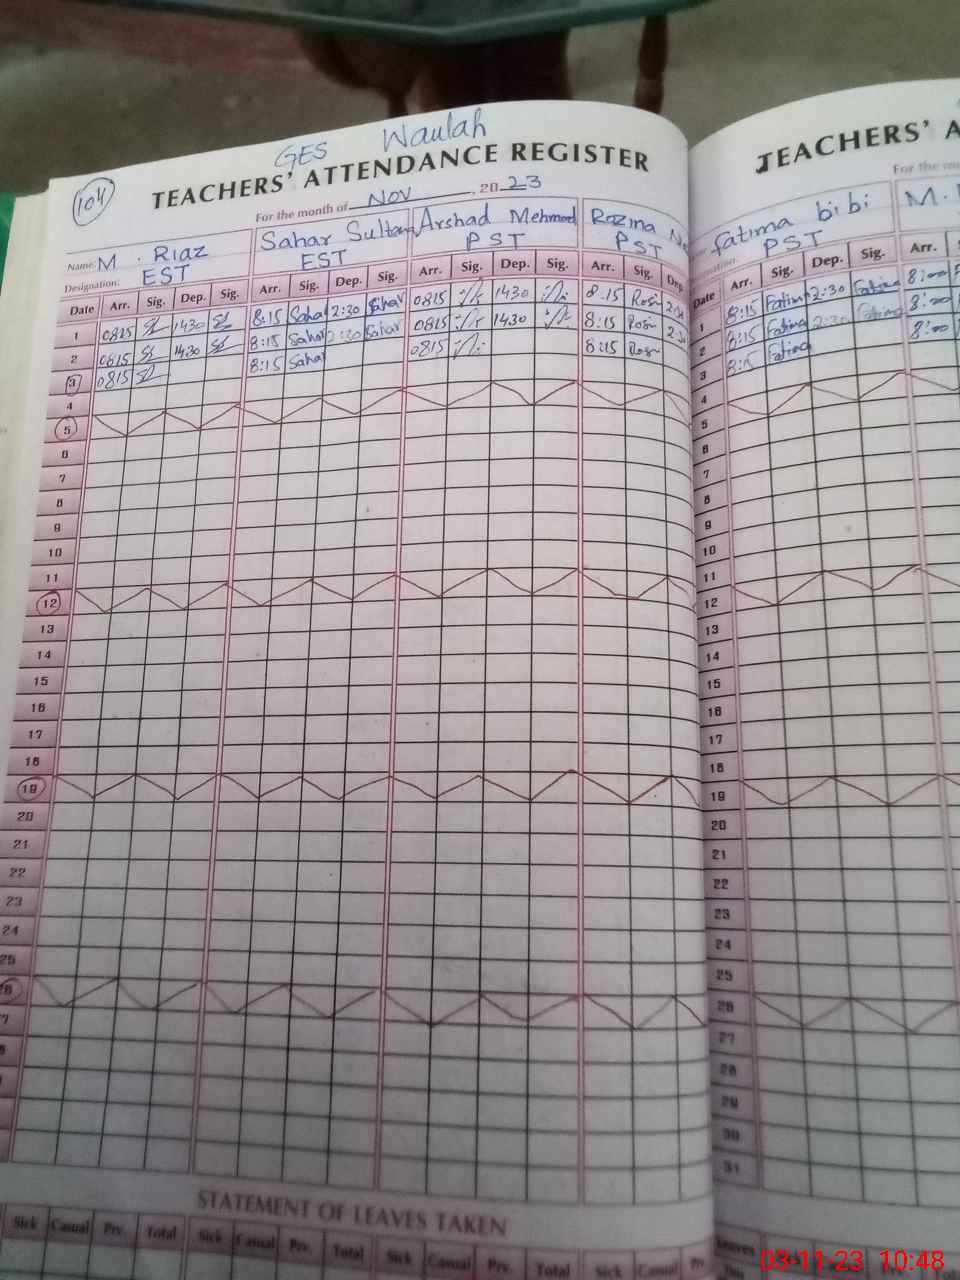 GES Waulah
104
TEACHERS' ATTENDANCE REGISTER
For the month of Nov, 2023
Name: M. Riaz Sahar Sultana Arshad Mehmood Rozina
Designation: EST EST PST PST
Date Arr. Sig. Dep. Sig. Arr. Sig. Dep. Sig. Arr. Sig. Dep. Sig. Arr. Sig. Dep.
1 0815 1430 8:15 Sahar 2:30 Sahar 0815 1430 8:15 Rosi 2:30
2 0815 1430 8:15 Sahar 2:30 Sahar 0815 1430 8:15 Rosi 2:30
3 0815 8:15 Sahar 0815 8:15 Rosi
4
5
6
7
8
9
10
11
12
13
14
15
16
17
18
19
20
21
22
23
24
25
26
27
STATEMENT OF LEAVES TAKEN
Sick Casual Prv. Total Sick Casual Prv. Total Sick Casual Prv. Total Sick Casual Prv.
TEACHERS' A
For the
fatima bibi M.
PST
Date Arr. Sig. Dep. Sig. Arr.
1 8:15 Fatima 2:30 Fatima 8:00
2 8:15 Fatima 2:30 Fatima 8:00
3 8:15 Fatima 8:00
4
5
6
7
8
9
10
11
12
13
14
15
16
17
18
19
20
21
22
23
24
25
26
27
28
29
30
31
03-11-23 10:48